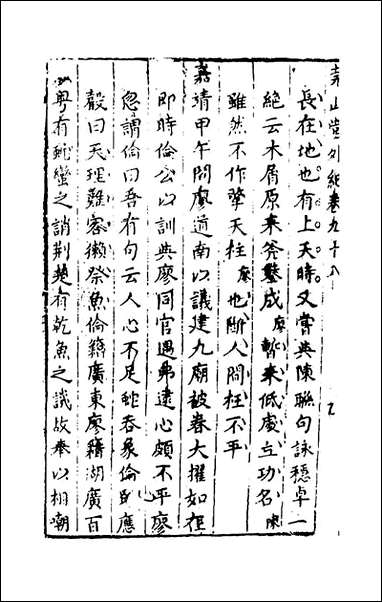 堯山堂外紀卷九十八
長在地也有上天時又嘗與陳聯句詠穩卓一
絶云木屑原來斧鑿成廖暫來低處立功名陳
雖然不作擎天柱廖也斷人間柱不平
嘉靖甲午間廖道南以議建九廟被眷大擢如在
即時倫公以訓與廖同官遇弗達心頗不平廖
忽謂倫曰吾有句云人心不足蛇吞象倫即應
聲曰天理難容獺祭魚倫籍廣東廖籍湖廣百
粤有蛇蠻之誚荆楚有乾魚之譏故奉以相嘲